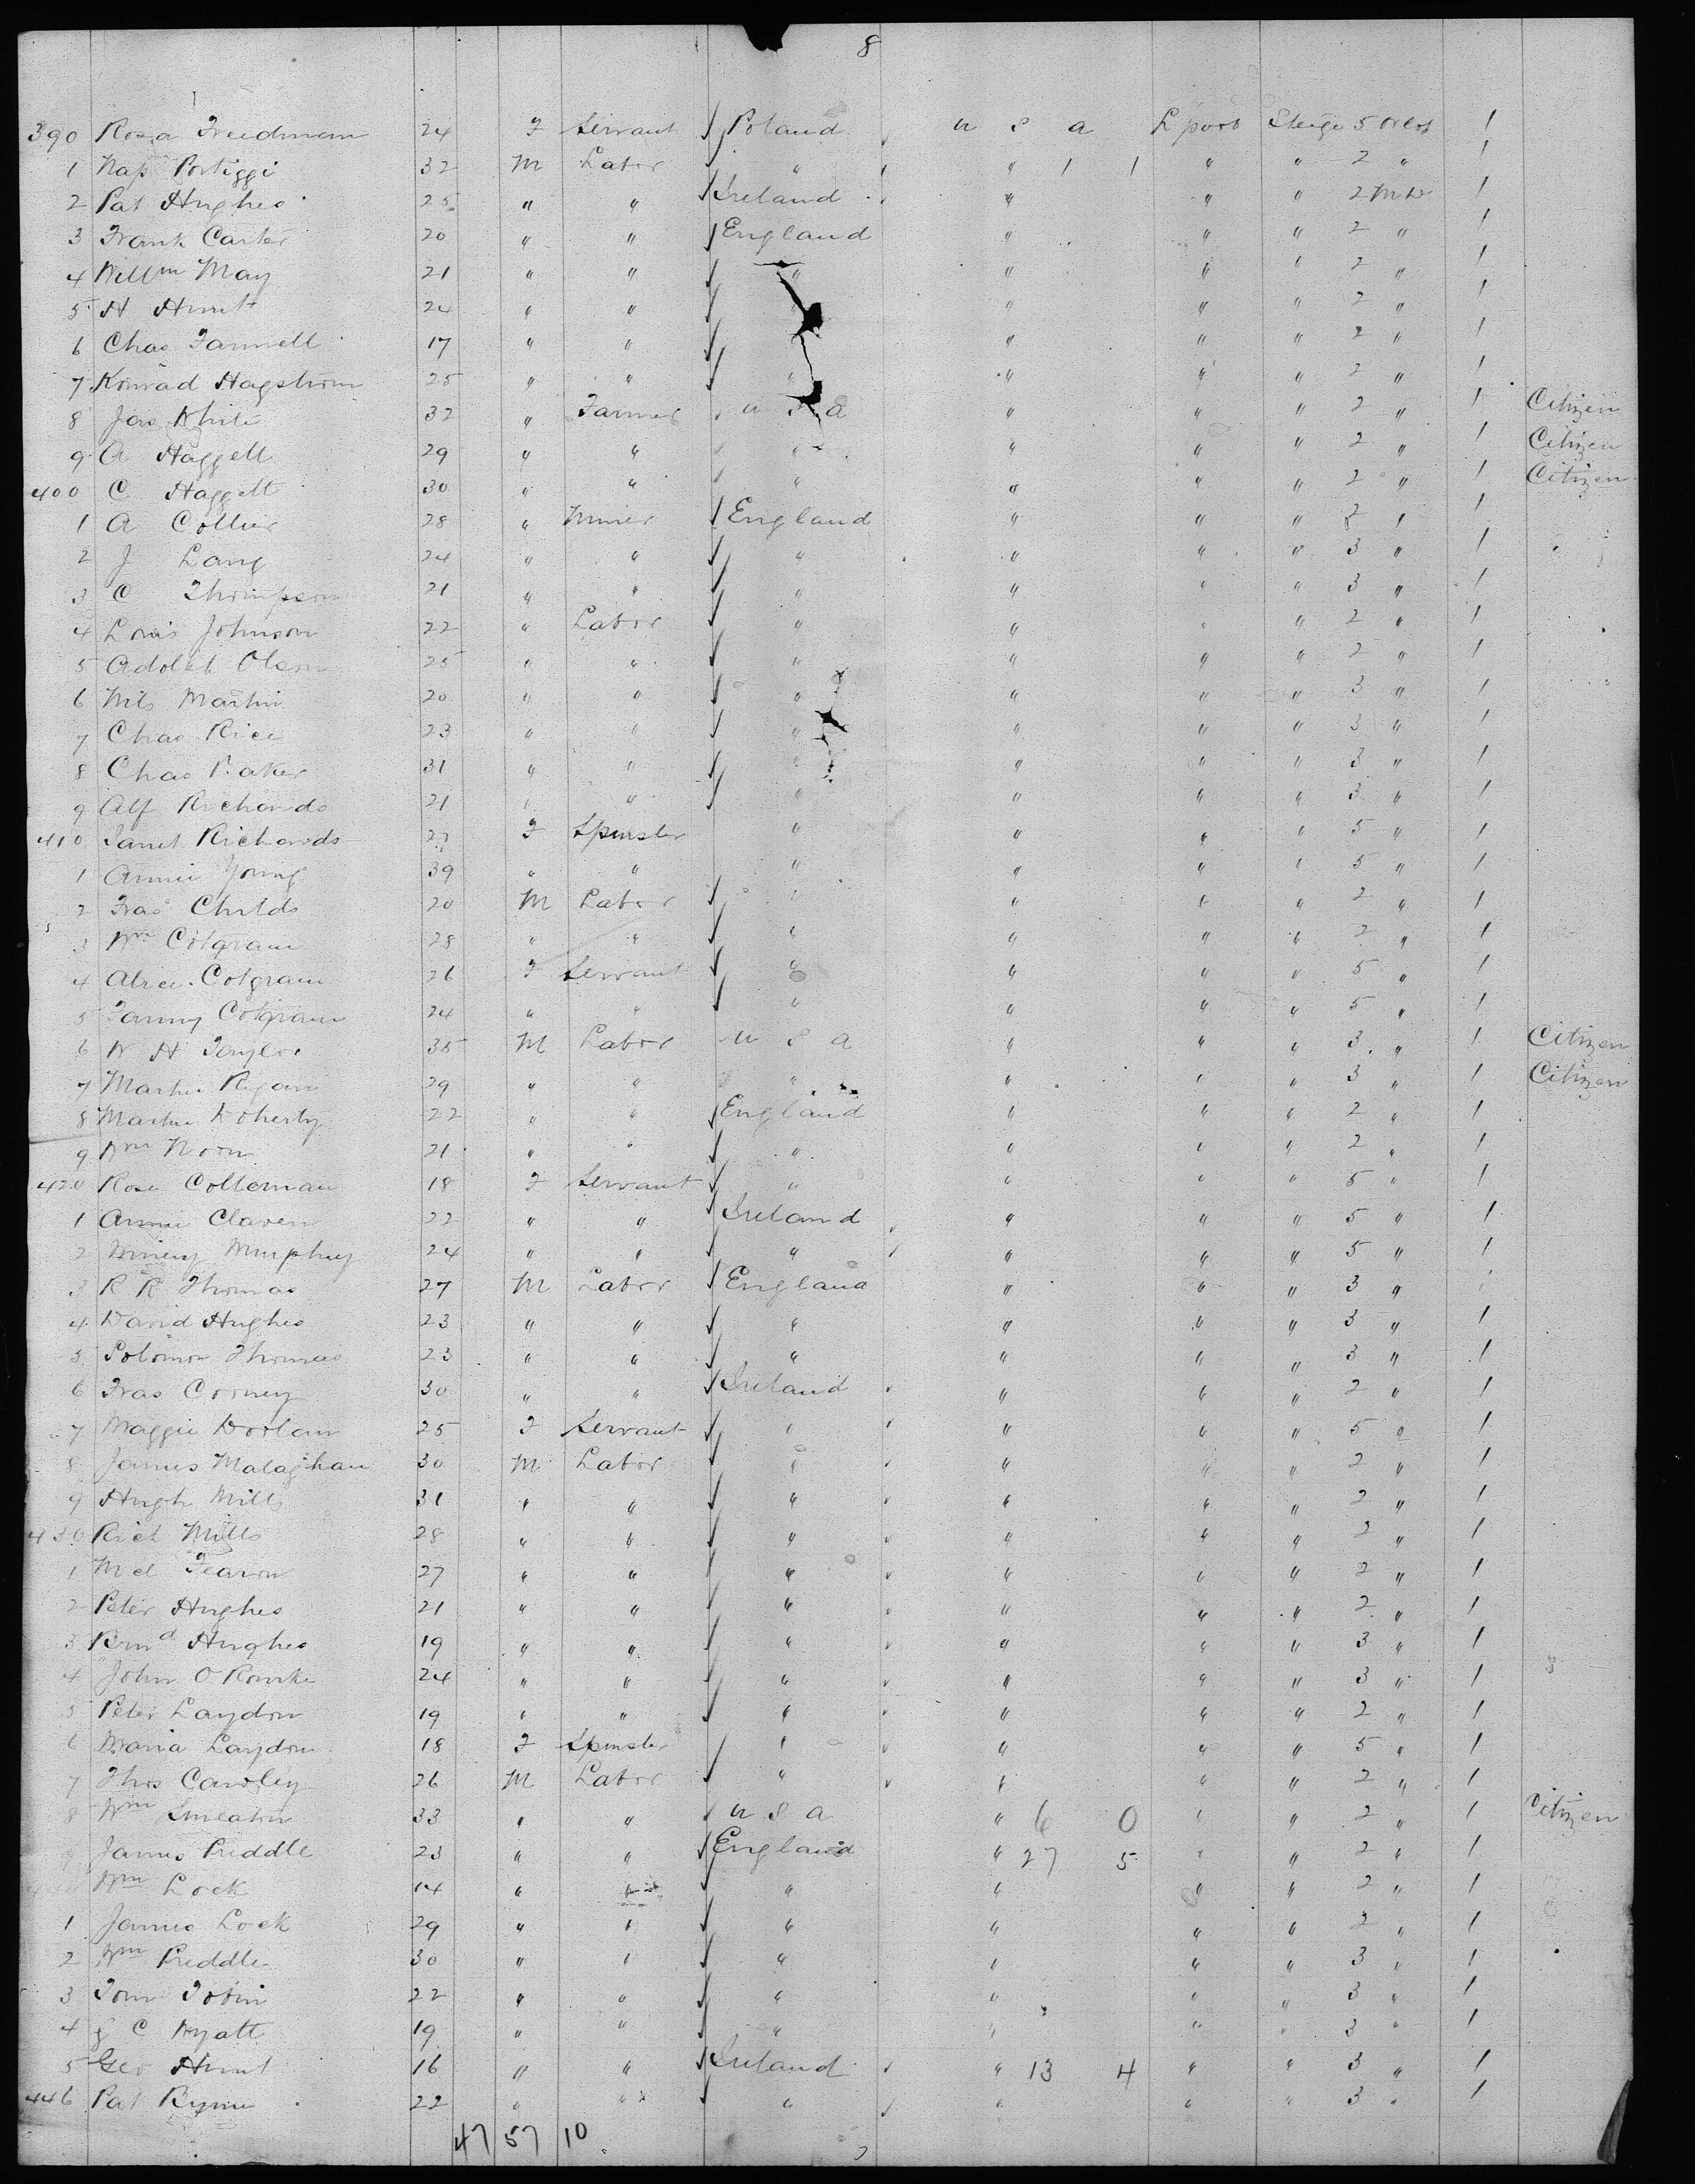 8
390 Rosa Freedman 24 F Servant Poland U S A L pool Steige 5 Orlop 1
1 Nap Portiggi 32 M Labor " " 1 1 " " 2 " 1
2 Pat Hughes 25 " " Ireland " " " 2 Mdk 1
3 Frank Carter 20 " " England " " " 2 " 1
4 Willm May 21 " " " " " " 2 " 1
5 H Hunt 24 " " " " " " 2 " 1
6 Chas Fannell 17 " " " " " 2 " 1
7 Konrad Hagstrom 25 " " " " " " 2 " 1
8 Jas White 32 " Farmer U S A " " " 2 " 1 Citizen
9 A Haggett 29 " " " " " " 2 " 1 Citizen
400 C Haggett 30 " " " " " " 2 " 1 Citizen
1 A Collier 28 " Miner England " " " 2 " 1
2 J Lang 24 " " " " " " 3 " 1
3 C Thompson 21 " " " " " " 3 " 1
4 Louis Johnson 22 " Labor " " " " 2 " 1
5 Adolph Olsen 25 " " " " " " 2 " 1
6 Nils Martin 20 " " " " " " 3 " 1
7 Chas Rice 23 " " " " " " 3 " 1
8 Chas Baker 31 " " " " " " 3 " 1
9 Alf Richards 21 " " " " " " 3 " 1
410 Janet Richards F Spinster " " " " 5 " 1
1 Annie Young 39 " " " " " " 5 " 1
2 Fras Childs 20 M Labor " " " " 2 " 1
3 Wm Cotgram 28 " " " " " " 2 " 1
4 Alice Cotgram 26 F Servant " " " " 5 " 1
5 Fanny Cotgram 24 " " " " " " 5 " 1
6 W H Taylor 35 M Labor U S A " " " 3 " 1 Citizen
7 Martin Regan 29 " " " " " " 3 " 1 Citizen
8 Martin Doherty 22 " " England " " " 2 " 1
9 Wm Norn 21 " " " " " " 2 " 1
420 Rose Colleman 18 F Servant " " " " 5 " 1
1 Annie Claven 22 " " Ireland " " " 5 " 1
2 Murphy 24 " " " " " " 5 " 1
3 R R Thomas 27 M Labor England " " " 3 " 1
4 David Hughes 23 " " " " " " 3 " 1
5 Solomon Thomas 23 " " " " " " 3 " 1
6 Fras Corney 30 " " Ireland " " " 2 " 1
7 Maggie Doolan 25 F Servant " " " " 5 " 1
8 James Malaghan 30 M Labor " " " " 2 " 1
9 Hugh Mills 31 " " " " " " 2 " 1
430 Richd Mills 28 " " " " " " 2 " 1
1 Mcl Fearon 27 " " " " " " 2 " 1
2 Peter Hughes 21 " " " " " " 2 " 1
3 Bernd Hughes 19 " " " " " " 3 " 1
4 John O Rourke 24 " " " " " " 3 " 1
5 Peter Laydon 19 " " " " " " 2 " 1
6 Maria Laydon 18 F Spinster " " " " 5 " 1
7 Thos Cawley 26 M Labor " " " " 2 " 1
8 Wm Smeaton 33 " " U S A " 6 0 " " 2 " 1 Citizen
9 James Priddle 23 " " England " 27 5 " " 2 " 1
440 Wm Lock 14 " " " " " " 2 " 1
1 James Lock 29 " " " " " " 2 " 1
2 Wm Priddle 30 " " " " " " 3 " 1
3 Tom Tobin 22 " " " " " " 3 " 1
4 J C Wyatt 19 " " " " " " 3 " 1
5 Geo Hunt 16 " " Ireland " 13 4 " " 3 " 1
446 Pat Byrne 22 " " " " " " 3 " 1
47 57 10